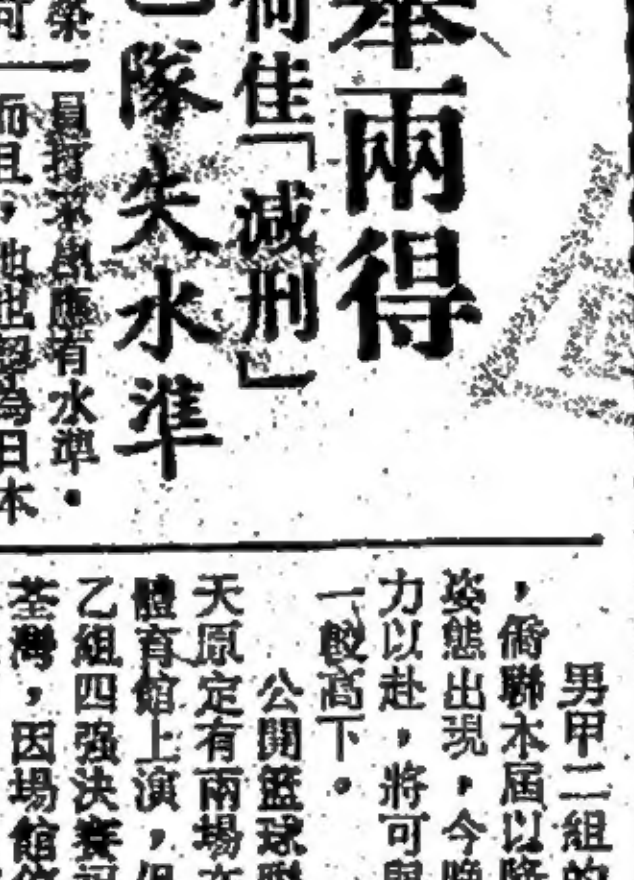 舉兩得
何佳「減刑」
隊失水準
應有水準。
而且，他也認為日本
男甲二組的
，僑聯本屆以
姿態出現，今晚
力以赴，將可與
一較高下。
公開籃球聯
天原定有兩場
體育館上演，但
乙組四强決賽
荃灣，因場館